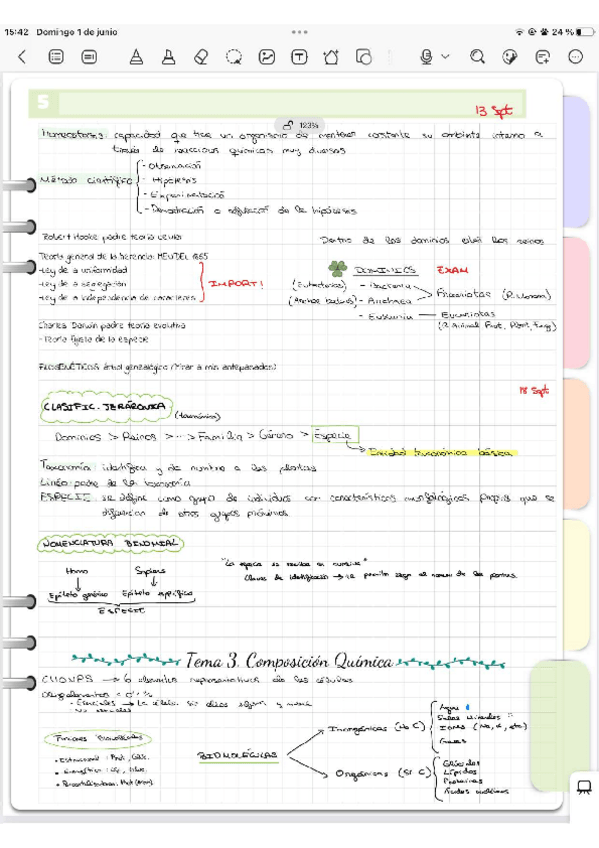 15:42 Domingo 1 de junio
24 %
5
13 Sept
123%
Homeostasis: capacidad que tiene un organismo de mantener constante su ambiente interno a
través de reacciones químicas muy diversas
Método científico
- Observación
- Hipótesis
- Experimentación
- Demostración o de la hipótesis
Robert Hooke padre teoría celular
Dentro de los dominios están los reinos
Teoría general de la herencia: MENDEL 1865
-Ley de a uniformidad
-Ley de a segregación
-Ley de a independencia de caracteres
IMPORT!
DOMINIOS EXAM
- Bacteria
- Archaea
Procariotas (R. Monera)
- Eukarya
Eucariotas
(R. Animal, Prot, Plant, Fung)
Charles Darwin padre teoría evolutiva
- Teoría fijista de la especie
FILOGENÉTICOS árbol genealógico (mirar a mis antepasados)
18 Sept
CLASIFIC. JERÁRQUIA
(taxonómica)
Dominios > Reinos > ··· > Familia > Género > Especie
Unidad taxonómica básica
Taxonomía: identifica y da nombre a las plantas
Lineo: padre de la taxonomía
ESPECIE: se define como grupo de individuos con características morfológicas propias que se
diferencian de otros grupos próximos
NOMENCLATURA BINOMIAL
Homo Sapiens
Epíteto genérico Epíteto específico
ESPECIE
"La especie se escribe en cursiva"
Claves de identificación → se permiten llegar al nombre de las plantas
Tema 3. Composición Química
CHONPS → 6 elementos representativos de las células
Oligoelementos < 0'1 %
- Esenciales → La célula sin ellos and muere
- No esenciales
Funciones Biomoléculas
• Estructural: Prot., Glúc.
• Energética: Líp., Glúc.
BIOMOLÉCULAS
Inorgánicas (No C)
Agua
Sales minerales =
IONES (Na, K, etc)
Gases
Orgánicas (Sí C)
Glúcidos
Lípidos
Proteínas
Ácidos nucléicos